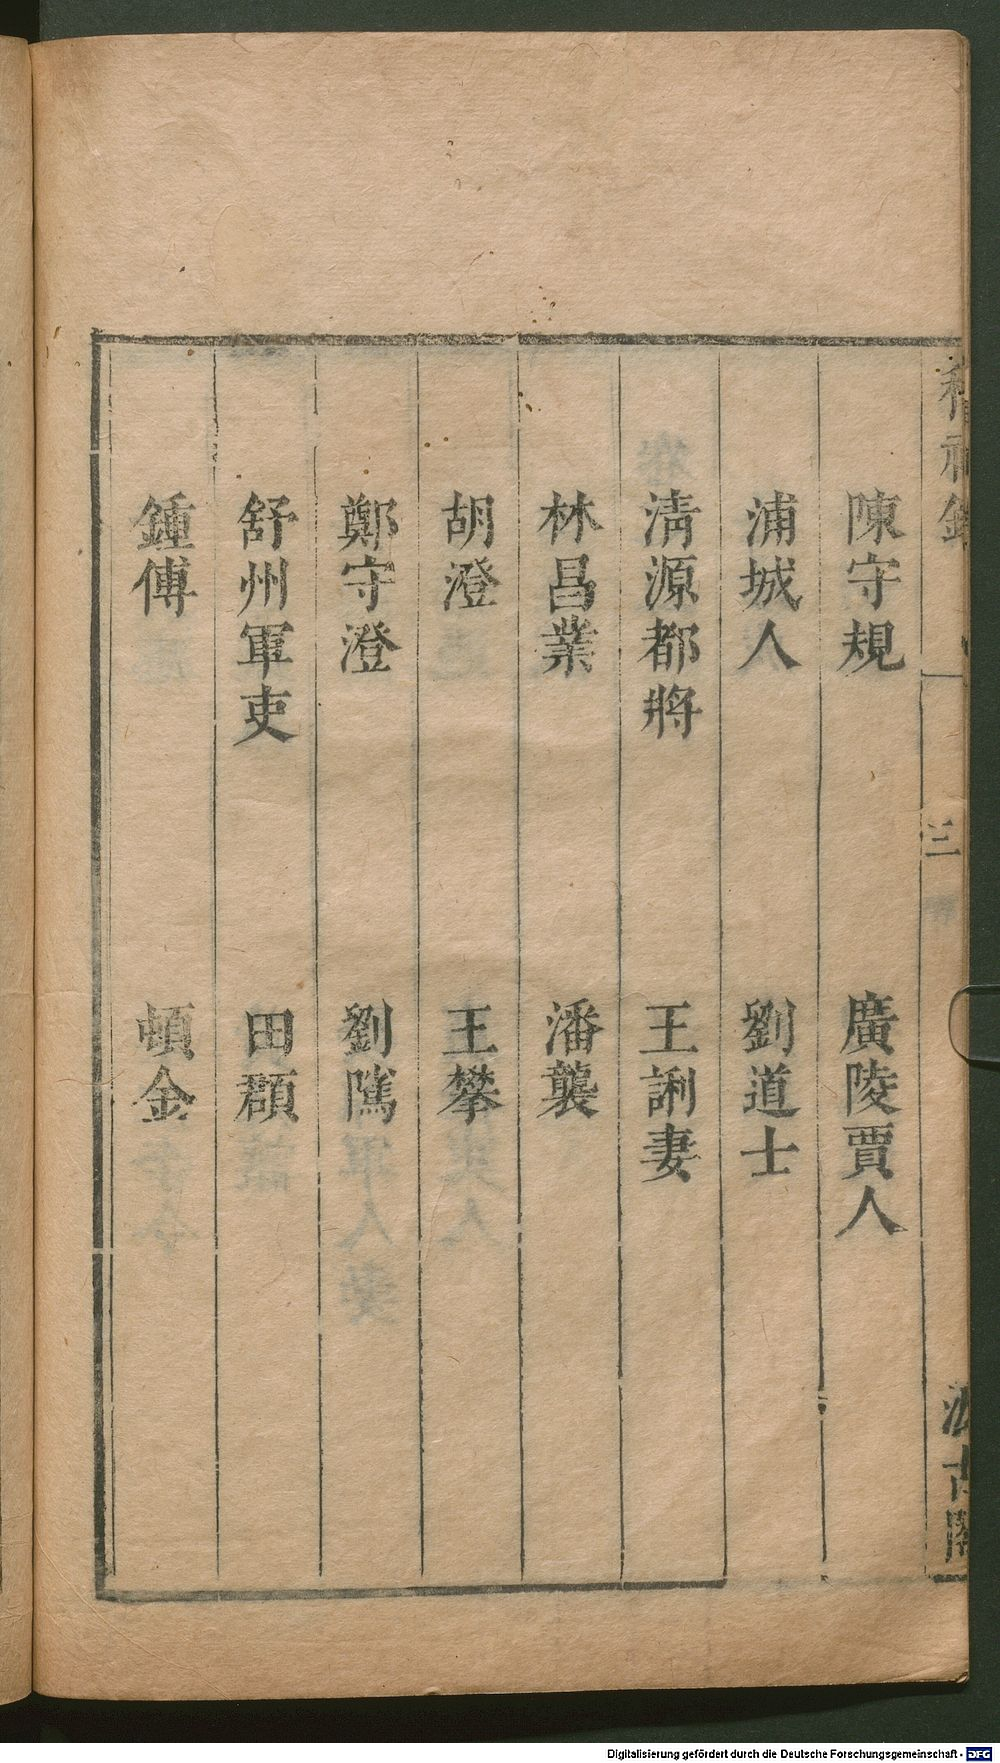 稽神錄
三
汲古閣
陳守規 廣陵賈人
浦城人 劉道士
淸源都將 王誗妻
林昌業 潘襲
胡澄 王攀
鄭守澄 劉隲
舒州軍吏 田頵
鍾傅 頓金
Digitalisierung gefördert durch die Deutsche Forschungsgemeinschaft - DFG